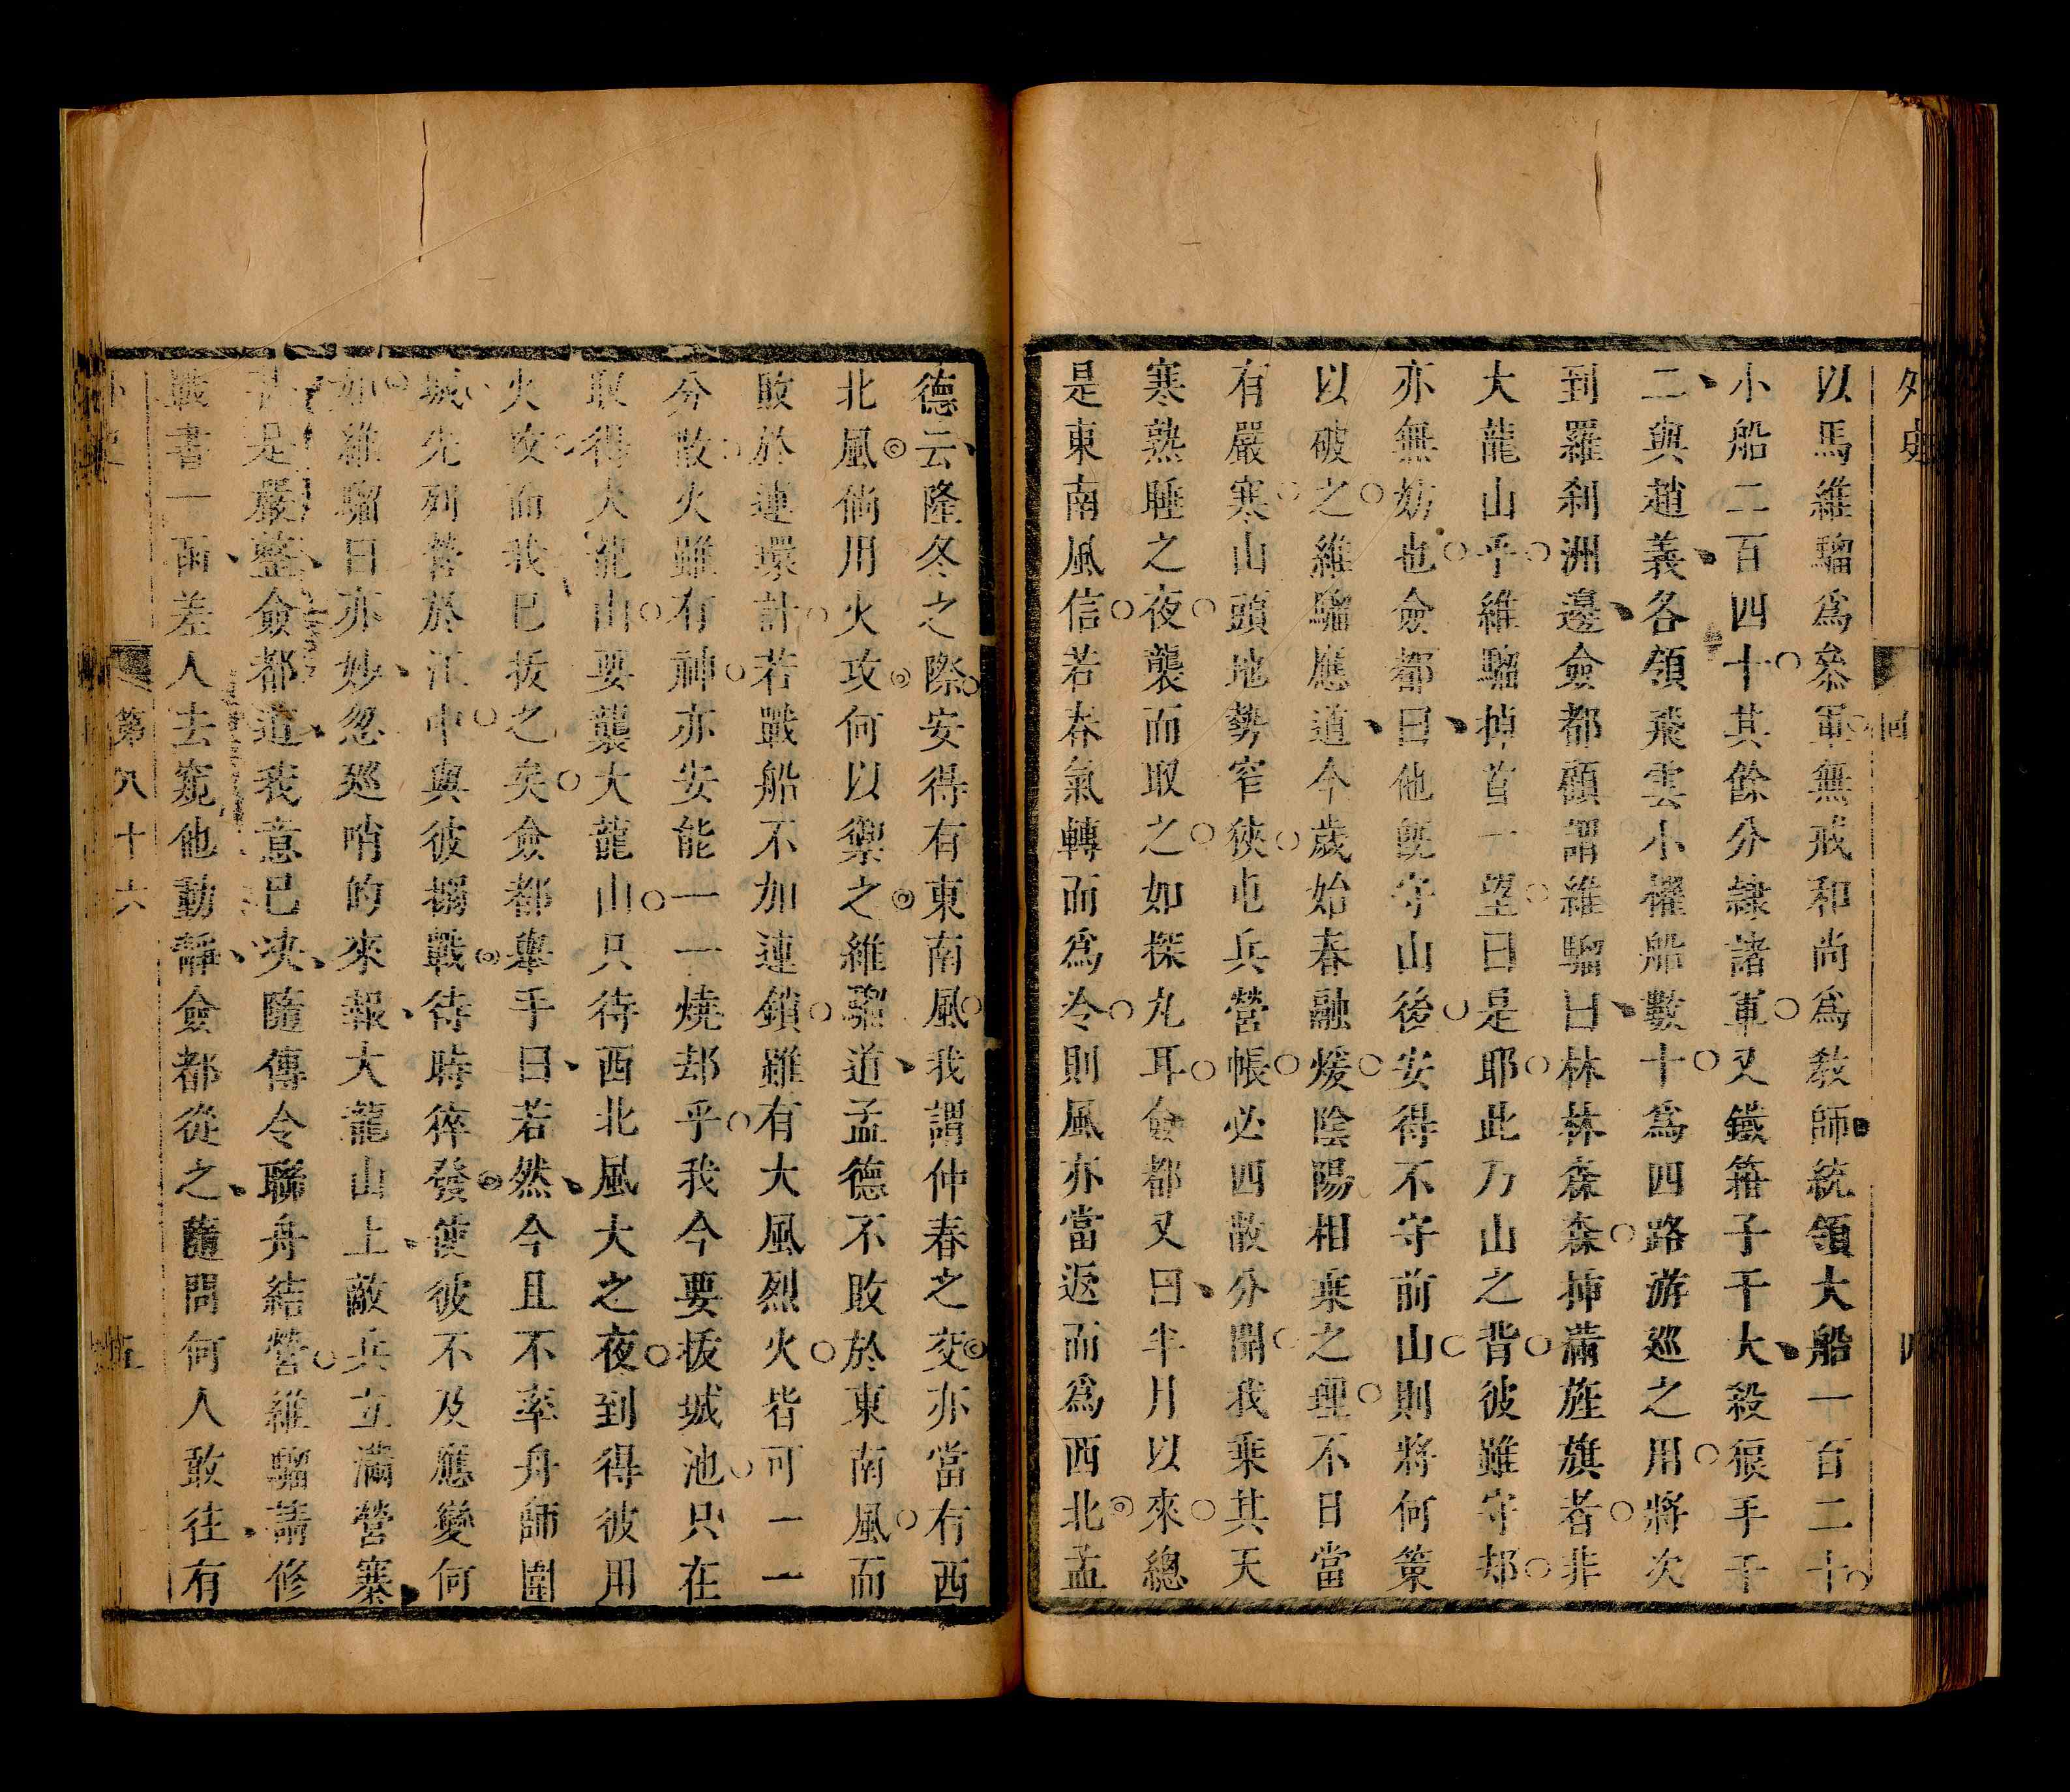 外史
回
四
以馬維騮爲叅軍無戒和尚爲敎師統領大船一百二十
小船二百四十其餘分隷諸軍又鐵箍子干大殺狠手千
二與趙義各領飛雲小櫂船數十爲四路游巡之用將次
到羅刹洲邊僉都顧謂維騮曰林林森森揷滿旌旗者非
大龍山乎維騮掉首一望曰是耶此乃山之背彼雖守却
亦無妨也僉都曰他旣守山後安得不守前山則將何策
以破之維騮應道今歲始春融煖陰陽相乘之理不日當
有嚴寒山頭地勢窄狹屯兵營帳必四散分開我乘其天
寒熟睡之夜襲而取之如探丸耳僉都又曰半月以來總
是東南風信若春氣轉而爲冷則風亦當返而爲西北孟
德云隆冬之際安得有東南風我謂仲春之交亦當有西
北風倘用火攻何以禦之維騮道孟德不敗於東南風而
敗於連環計若戰船不加連鎖雖有大風烈火皆可一一
分散火雖有神亦安能一一燒却乎我今要拔城池只在
取得大龍山要襲大龍山只待西北風大之夜到得彼用
火攻而我已拔之矣僉都舉手曰若然今且不率舟師圍
城先列營於江中與彼搦戰待時猝發使彼不及應變何
如維騮曰亦妙忽廵哨的來報大龍山上敵兵立滿營寨
甚是嚴整僉都道我意已决隨傳令聯舟結營維騮請修
戰書一函差人去窺他動靜僉都從之隨問何人敢往有
外史
第八十六
五